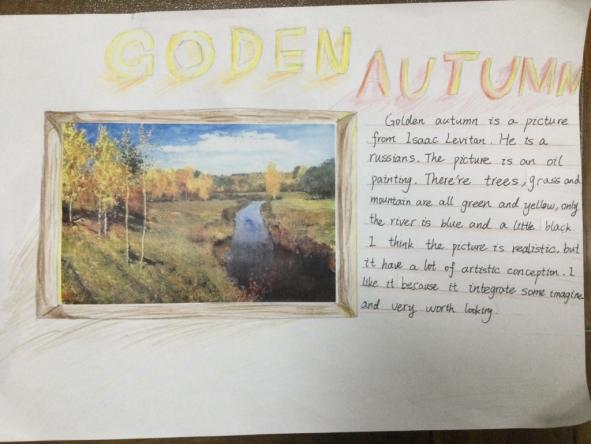 GODEN AUTUMN
Golden autumn is a picture
from Isaac Levitan. He is a
russians. The picture is an oil
painting. There're trees, grass and
mountain are all green and yellow, only
the river is blue and a little black.
I think the picture is realistic. but
it have a lot of artistic conception. I
like it because it integrate some imagine
and very worth looking.